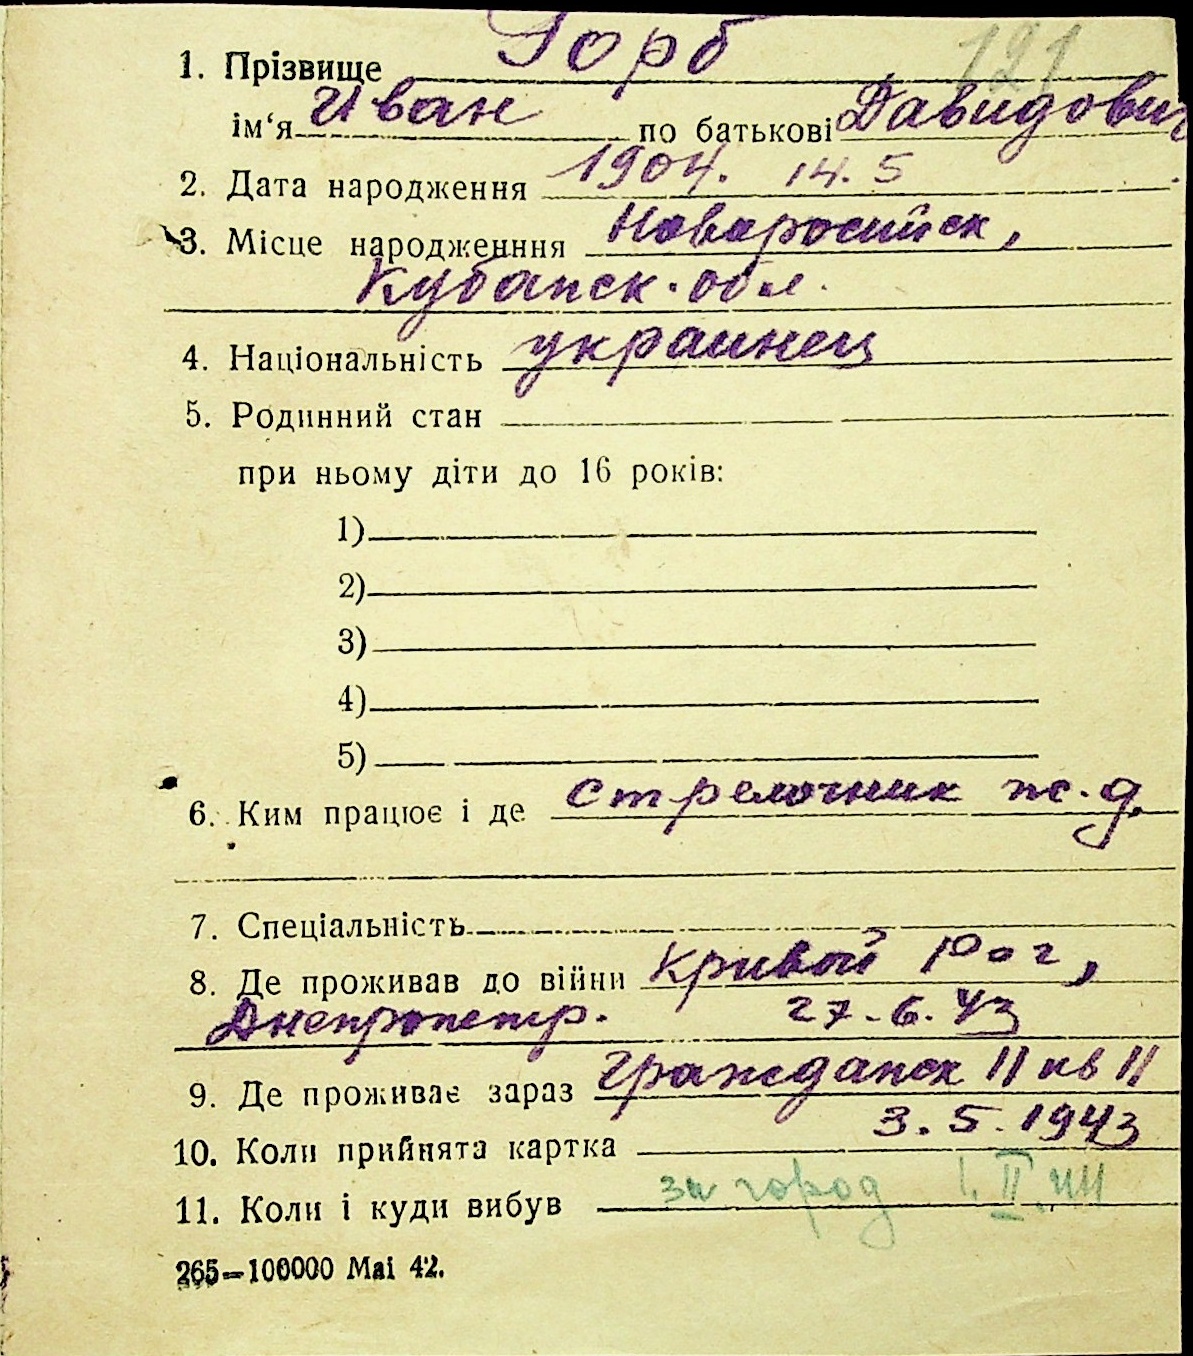 121
1. Прізвище Горб
ім‘я Иван по батькові Давидович
2. Дата народження 1904. 14.5
3. Місце народженння Новоросийск,
Кубанск. обл.
4. Національність украинец
5. Родинний стан
при ньому діти до 16 років:
1)
2)
3)
4)
5)
6. Ким працює і де стрелочник ж.д.
7. Спеціальність
8. Де проживав до війни Кривой Рог,
Днепропетр. 27.6.43
9. Де проживає зараз Гражданск 11 кв 11
10. Коли прийнята картка 3.5.1943
11. Коли і куди вибув за город 1. II.
265—100000 Mai 42.